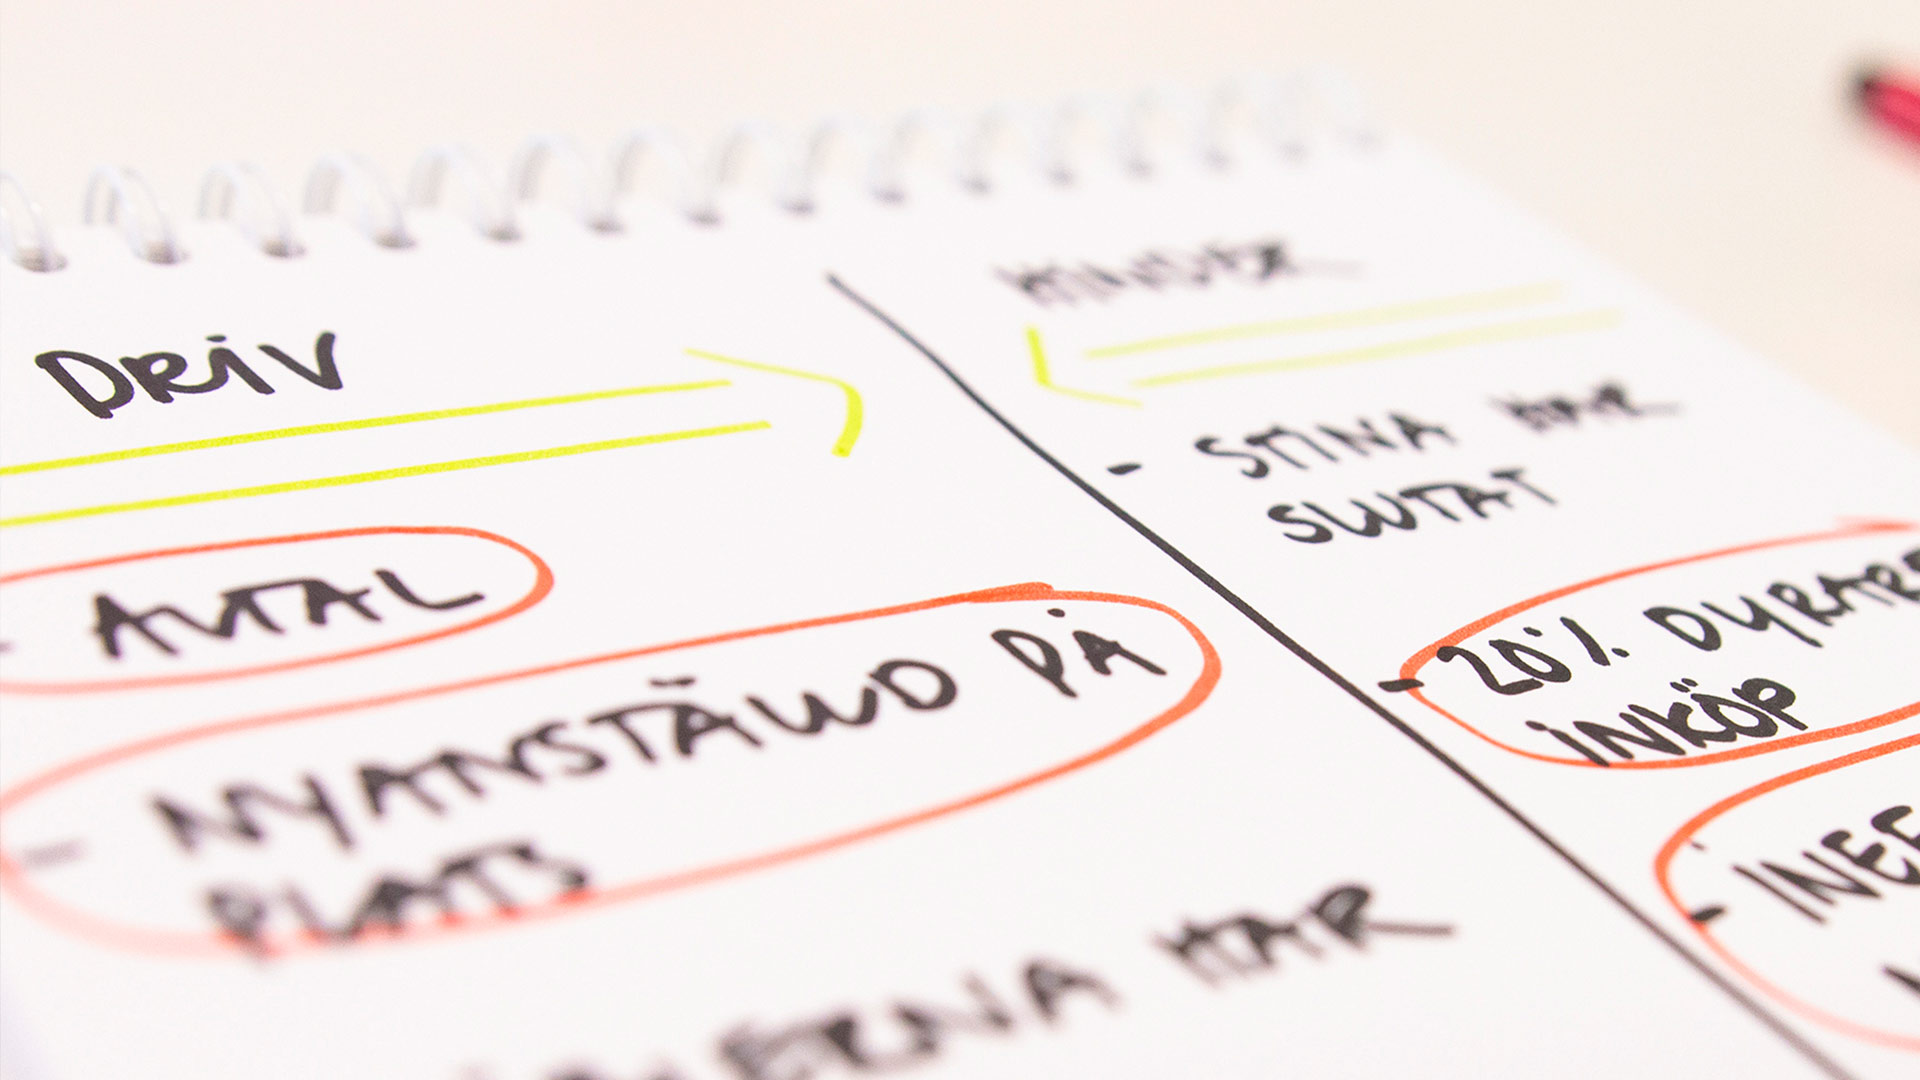 DRIV
- AVTAL
- NYANSTÄLLD PÅ
PLATS
HAR
HINDER
- STINA HAR
SLUTAT
- 20% DYRARE
INKÖP